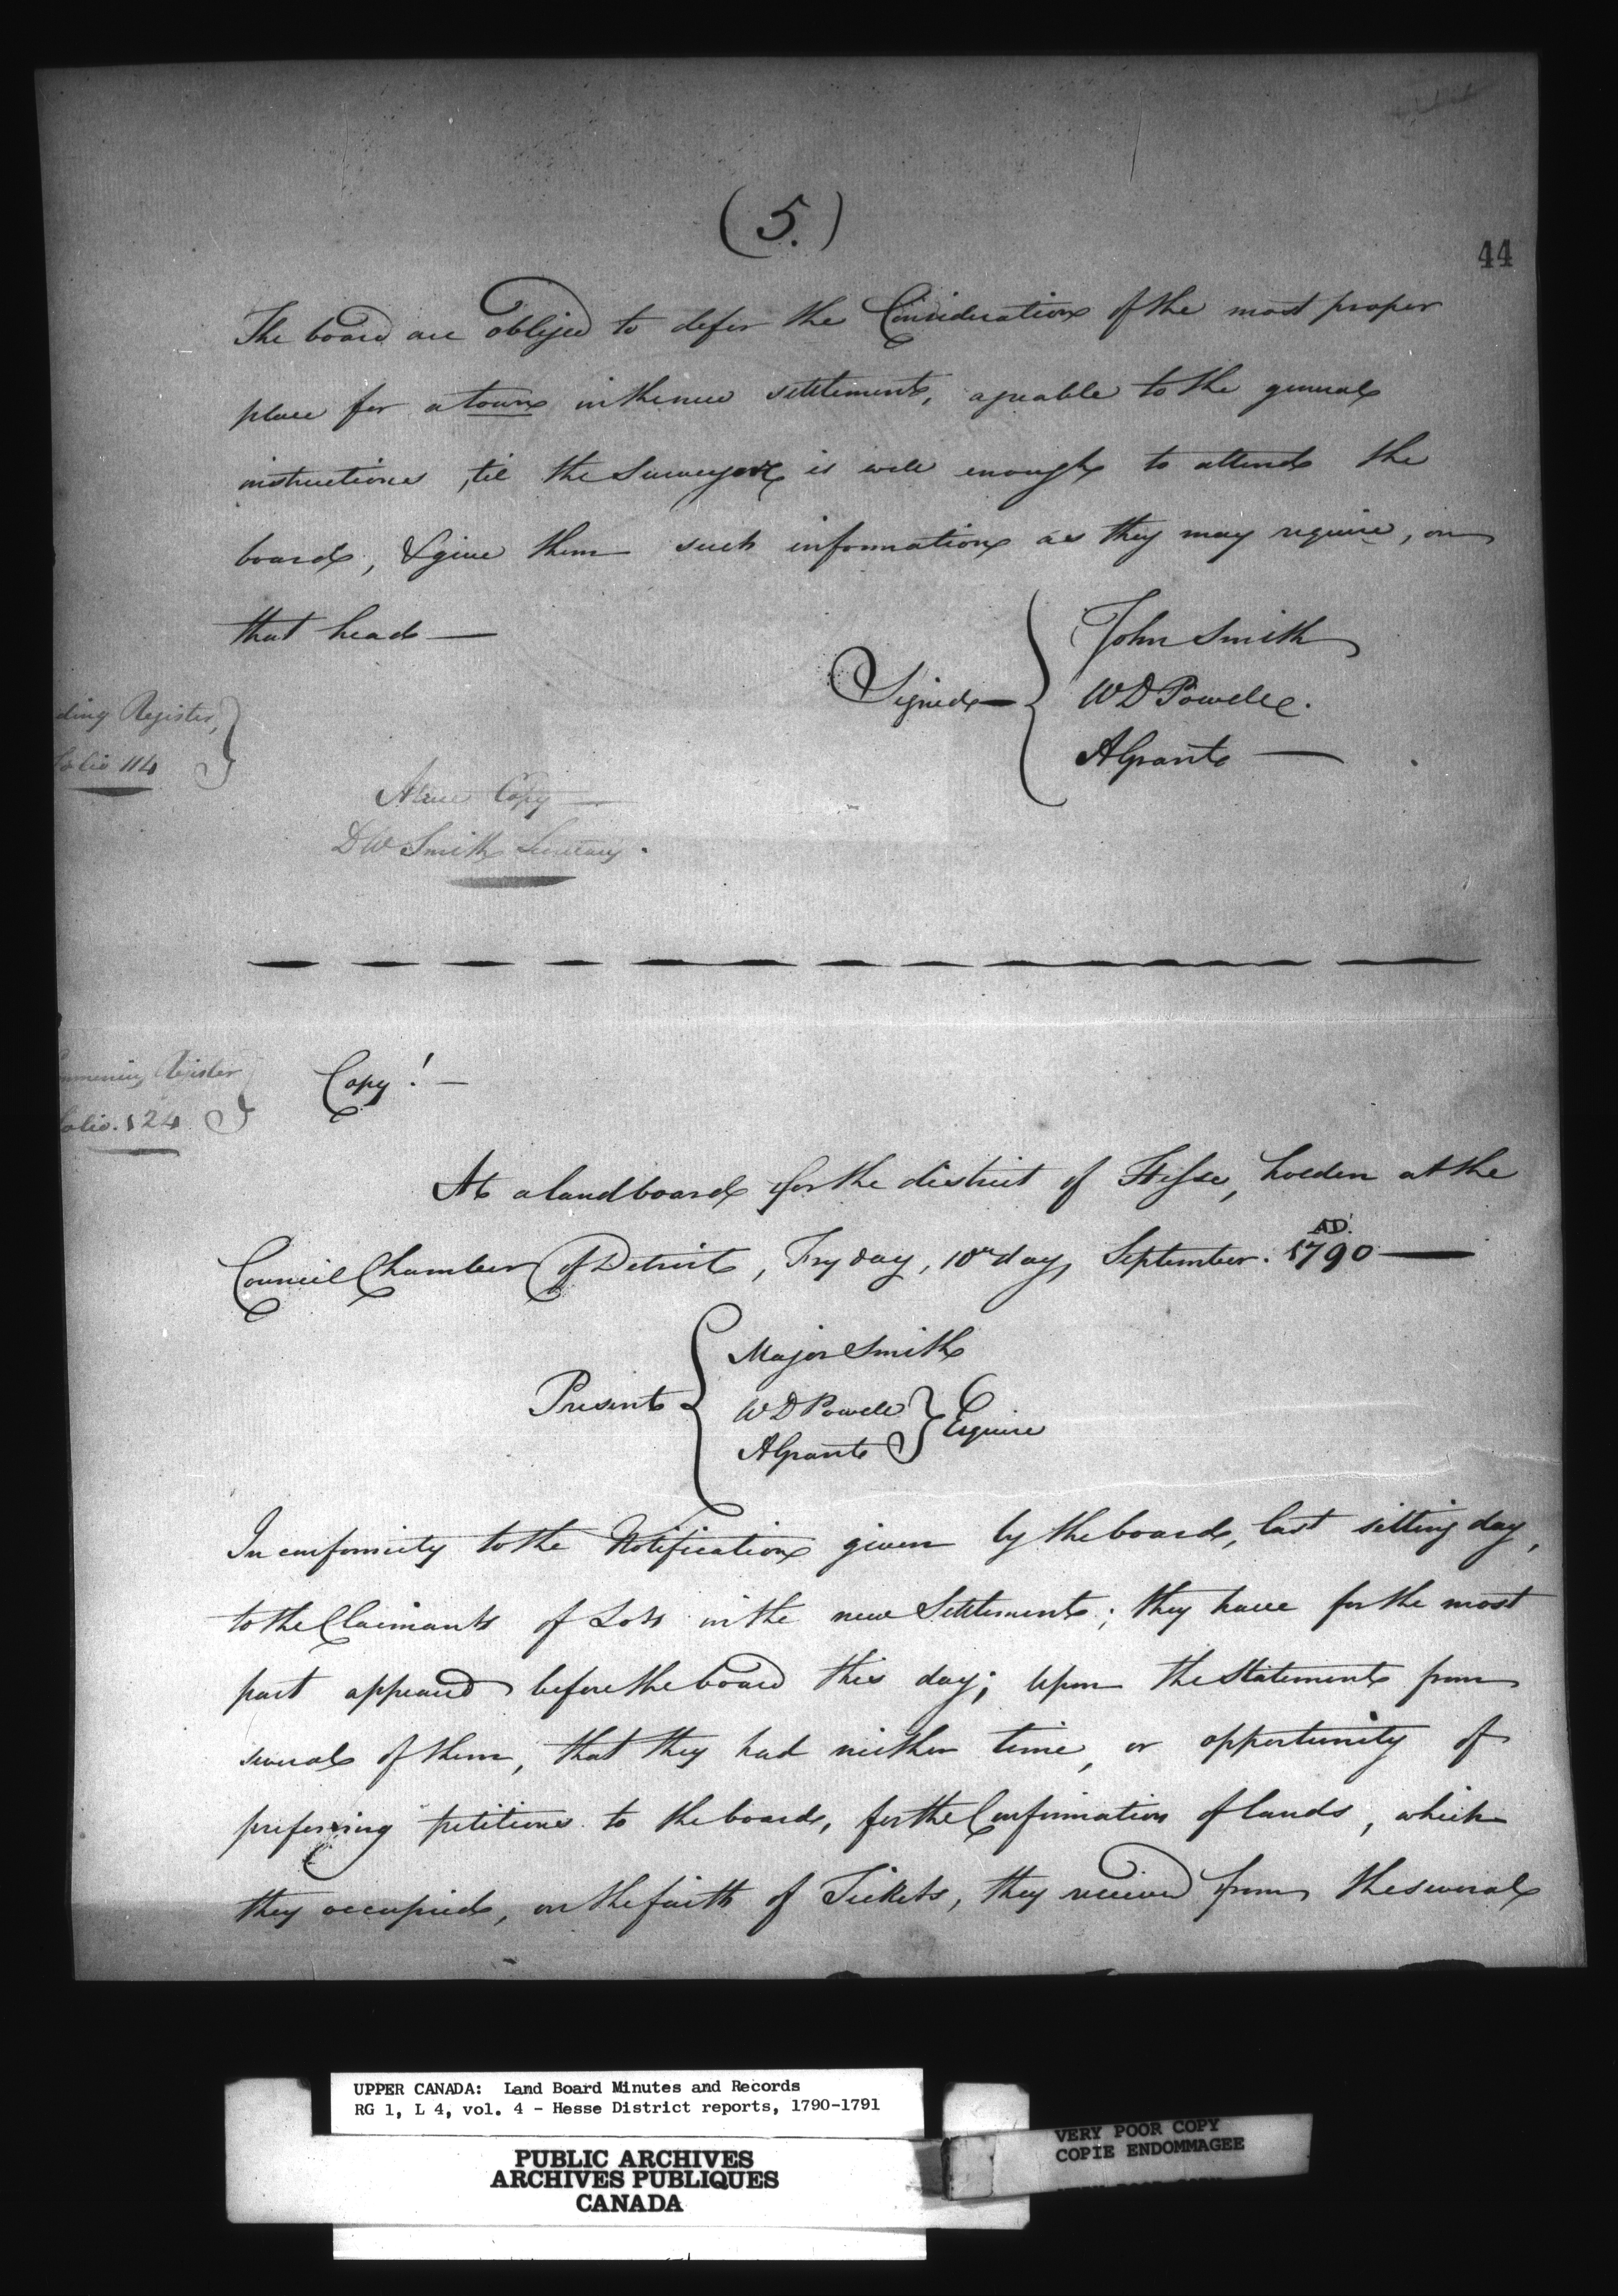 (5.)
44
The board are obliged to defer the Consideration of the most proper
place for a town in the new settlement, agreable to the general
instructions, til the Surveyor is well enough to attend the
board, & give them such information as they may require, on
that head —
Signed —
John Smith
W D Powell.
A Grant —
ding Register,
folio 114
A true Copy —
D W Smith Secretary.
Register
folio. 124
Copy! —
At a land board for the district of Hesse, holden at the
Council Chamber of Detroit, Fryday, 10th day, September. AD. 1790 —
Present
Major Smith
W D Powell
A Grant
Esquire
In conformity to the Notification given by the board, last sitting day,
to the Claimants of Lots in the new Settlement; they have for the most
part appeared before the board this day; Upon the Statement from
several of them, that they had neither time, or opportunity of
prefering petitions to the board, for the Confirmation of lands, which
they occupied, on the faith of Tickets, they received from the several
UPPER CANADA: Land Board Minutes and Records
RG 1, L 4, vol. 4 - Hesse District reports, 1790-1791
PUBLIC ARCHIVES
ARCHIVES PUBLIQUES
CANADA
VERY POOR COPY
COPIE ENDOMMAGEE